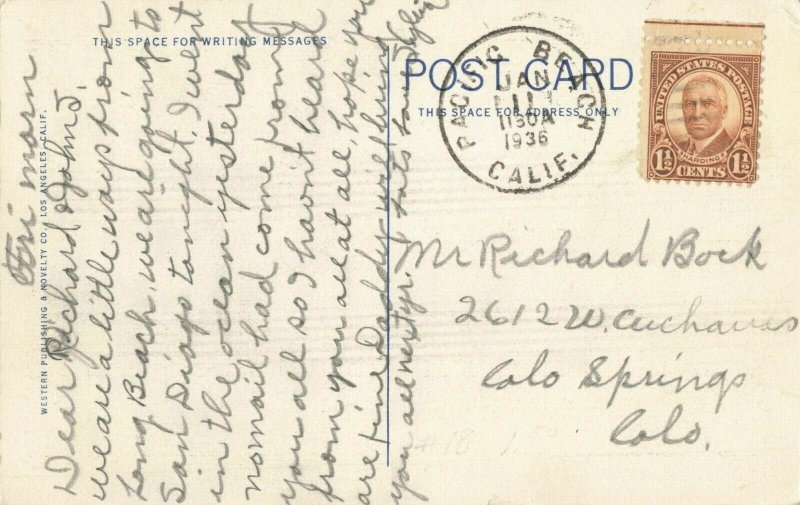 THIS SPACE FOR WRITING MESSAGES
POST CARD
THIS SPACE FOR ADDRESS ONLY
PACIFIC BEACH
JAN
11
1130A
1936
CALIF.
UNITED STATES POSTAGE
HARDING
1½ CENTS 1½
WESTERN PUBLISHING & NOVELTY CO., LOS ANGELES, CALIF.
Fri morn
Dear Richard & John J.
we are a little ways from
Long Beach, we are going to
San Diago tonight. I went
in the ocean yesterday
no mail had come from
you all so I havn't heard
from you all at all, hope you
are fine Daddy will bring
you all next yr. Lots love
Mr Richard Bock
2612 W. Cucharras
Colo Springs
Colo.